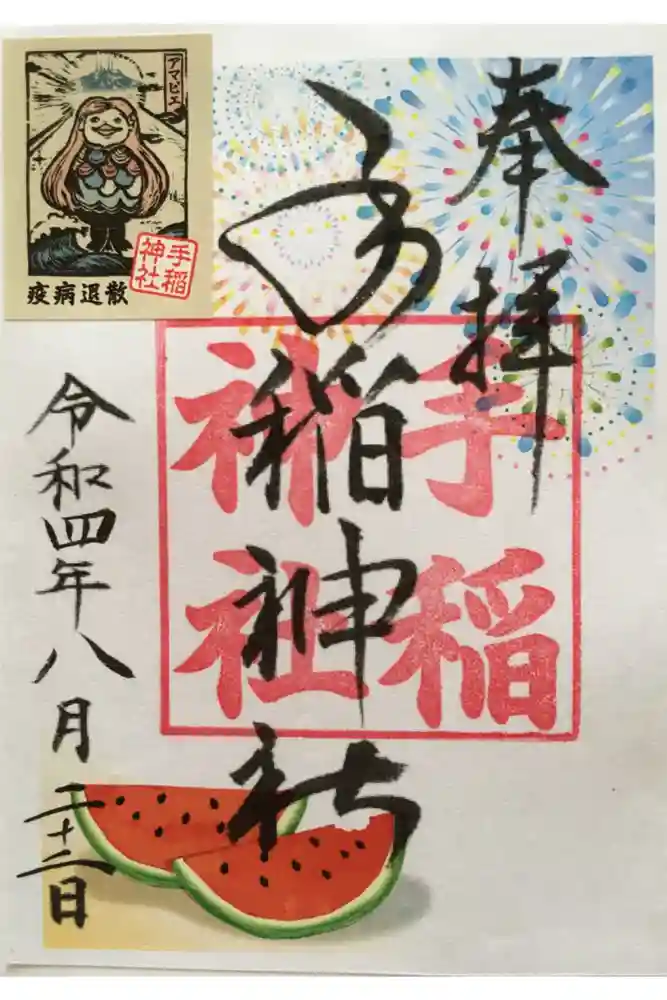 奉拝
手稲神社
手稲
神社
アマビエ
手稲
神社
疫病退散
令和四年八月二十二日